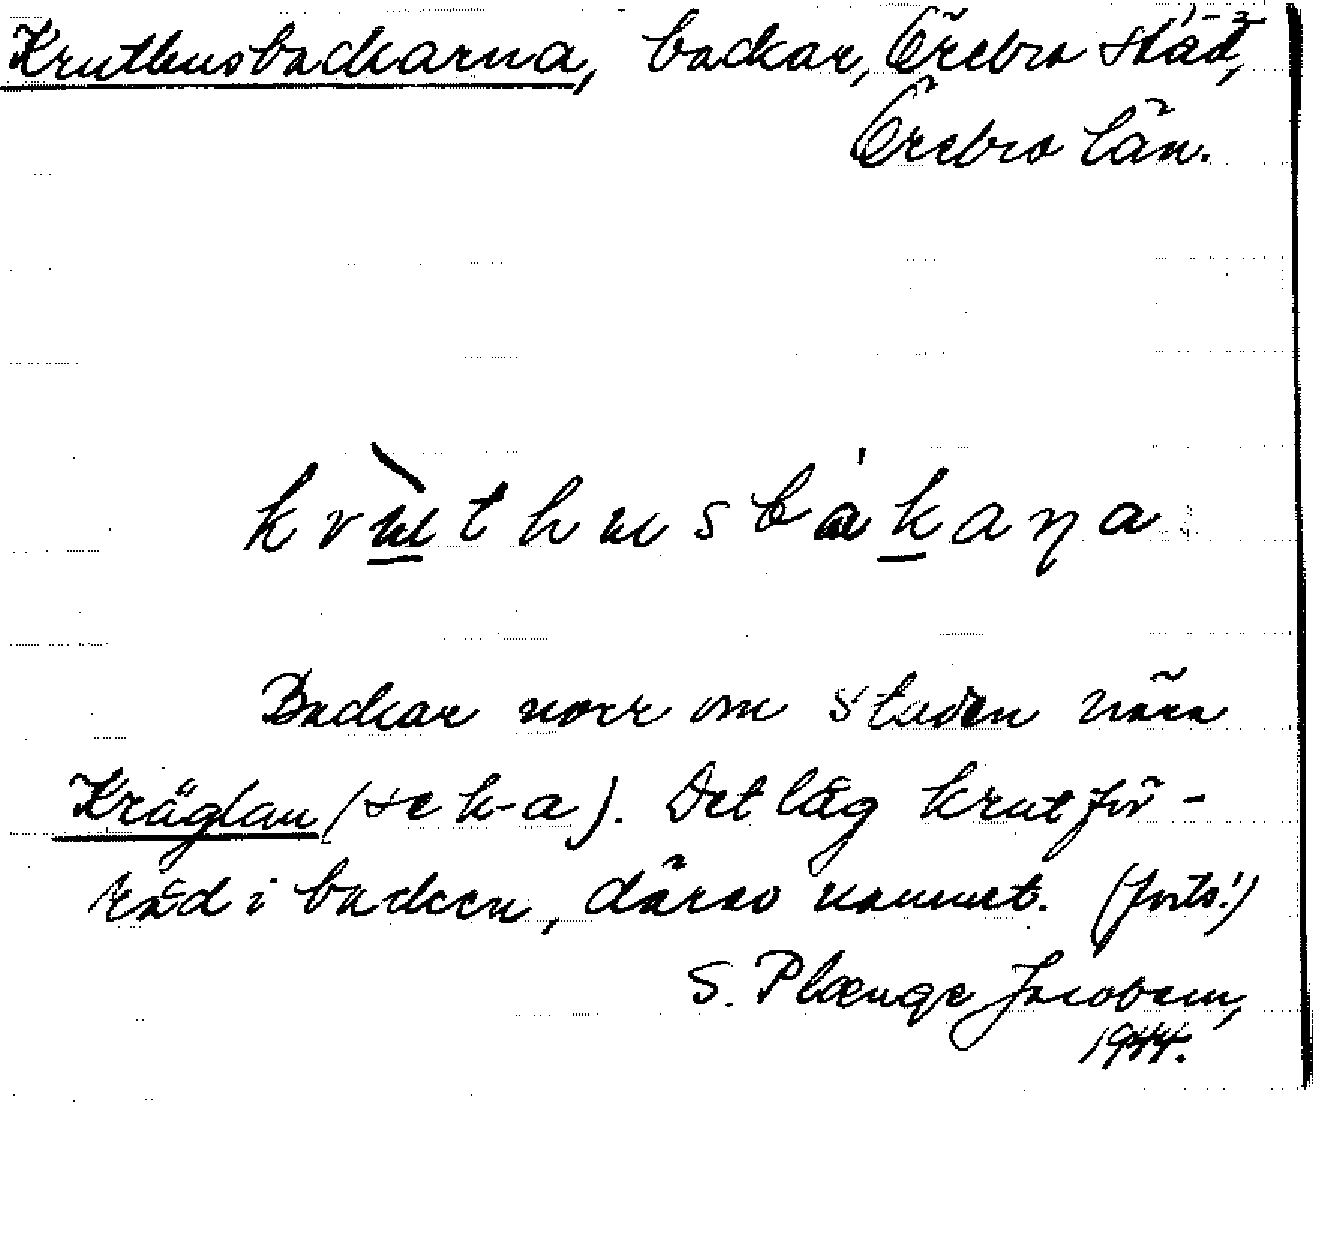 Kruthusbackarna, backar, Örebro stad, 1-2
Örebro län.
krɯ̀thɯsbákaṇa
Backar norr om staden nära
Kräglan (se k-a). Det låg krutför-
råd i backen, därav namnet. (forts!)
S. Plænge Jacobson,
1944.